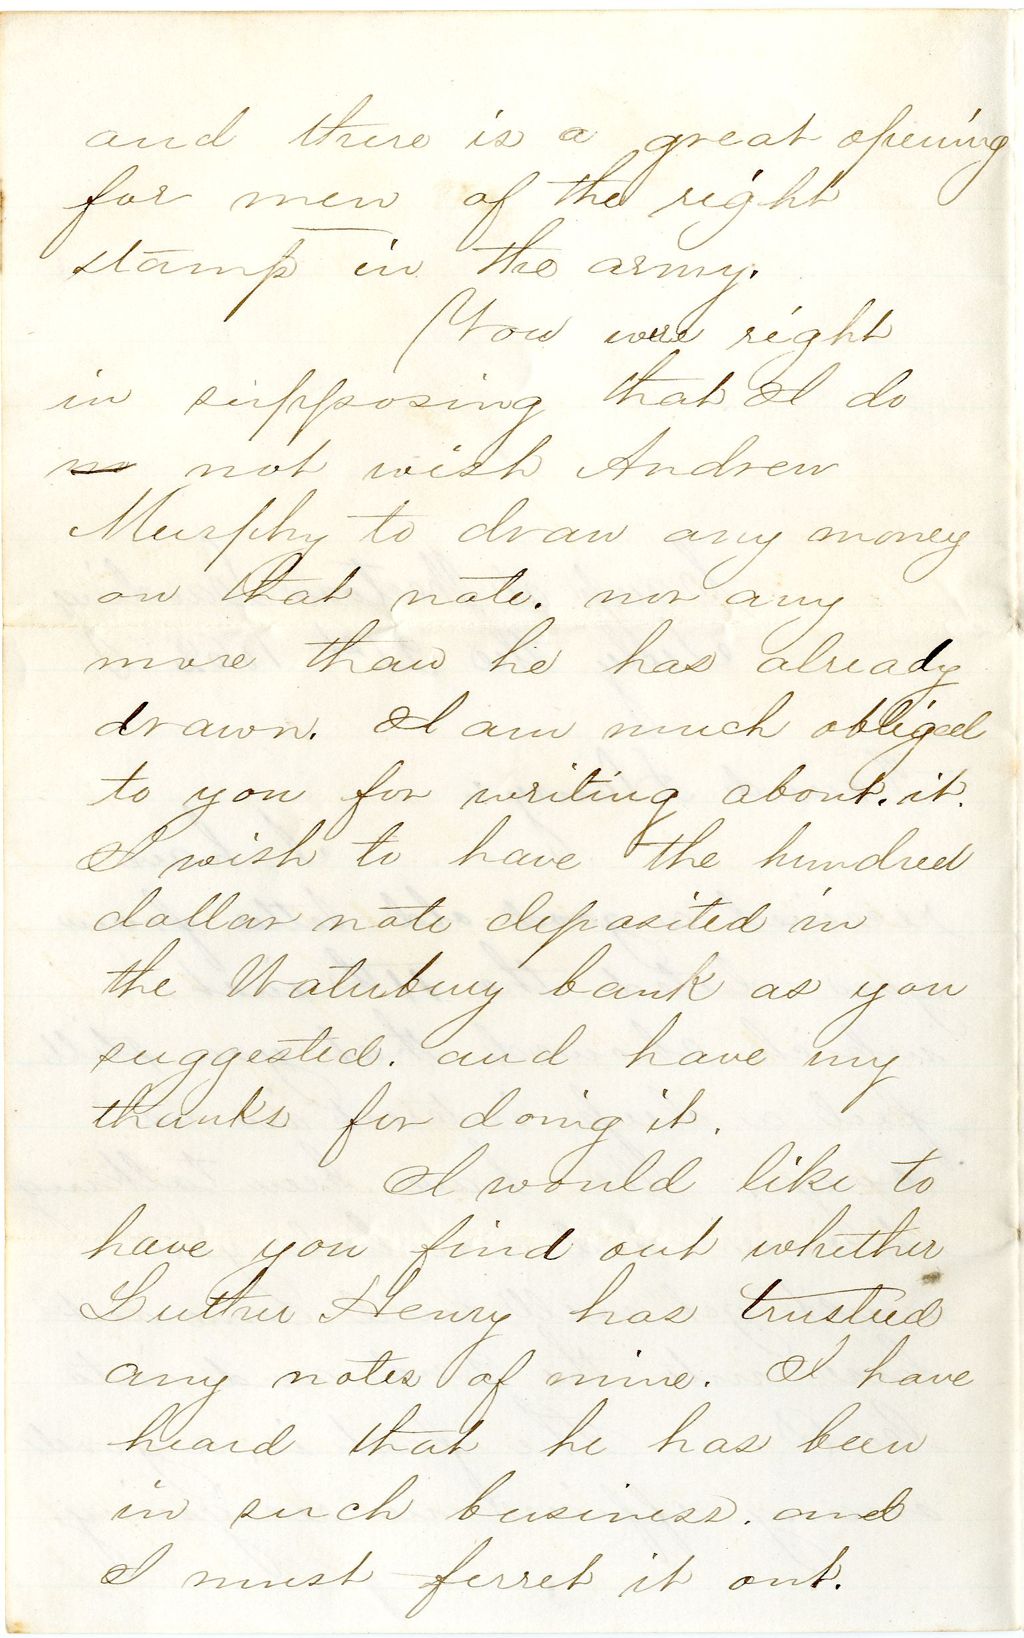 and there is a great opening
for men of the right
stamp in the army.
You were right
in supposing that I do
no not wish Andrew
Murphy to draw any money
on that note. nor any
more than he has already
drawn. I am much obliged
to you for writing about. it.
I wish to have the hundred
dollar note deposited in
the Waterbury bank as you
suggested. and have my
thanks for doing it.
I would like to
have you find out whether
Luther Henry has trusteed
any notes of mine. I have
heard that he has been
in such business. and
I must ferret it out.